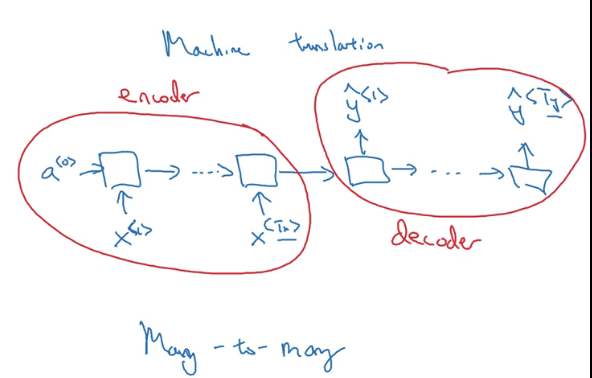 Machine translation
encoder
ŷ<1> ŷ<Ty>
a<0> → → ····→ → → ··· →
x<1> x<Tx>
decoder
Many-to-many